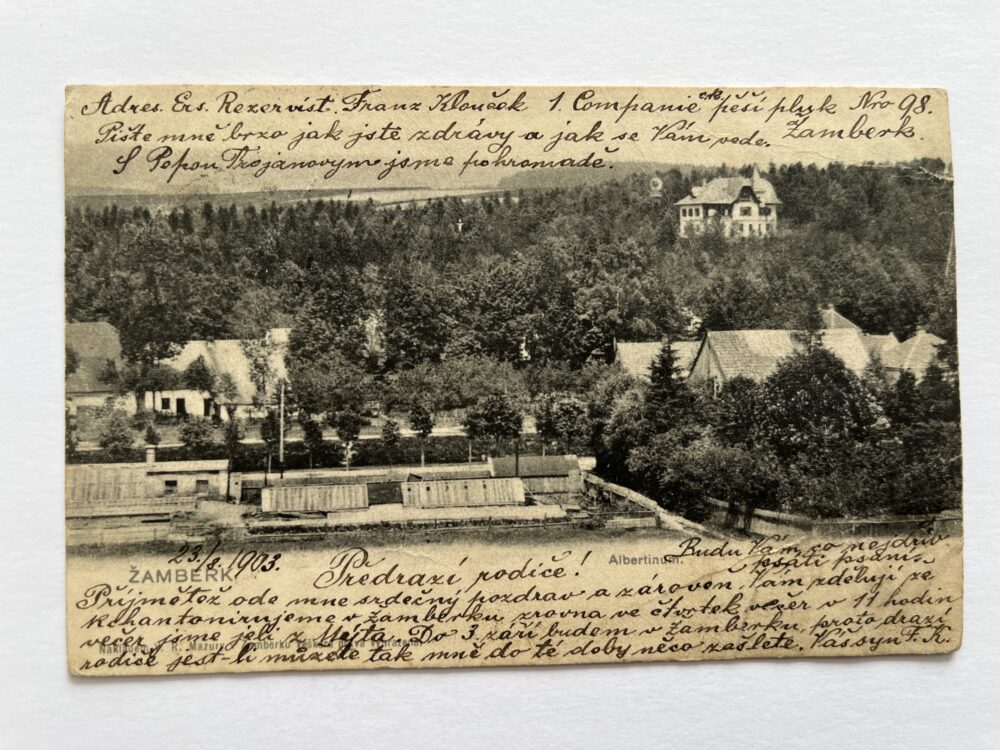 Adres. Ers. Rezervist. Franz Klouček 1. Companie c.k. pěší pluk Nro 98.
Pište mně brzo jak jste zdrávy a jak se Vám vede. Žamberk.
S Pepou Trojanovym jsme pohromadě.
23/8. 1903.
ŽAMBERK
Albertinum.
Předrazí rodiče!
Budu Vám co nejdřív
psáti psaní.
Přijmětež ode mne srdečný pozdrav a zároveň Vám zděluji že
kohantonirujeme v Žamberku, zrovna ve čtvrtek večer v 11 hodin
večer jsme jeli z Mejta. Do 3. září budem v Žamberku, proto drazí
rodiče jest-li můžete tak mně do té doby něco zašlete. Váš syn F. K.
Nákladem R. Mazury Žamberku